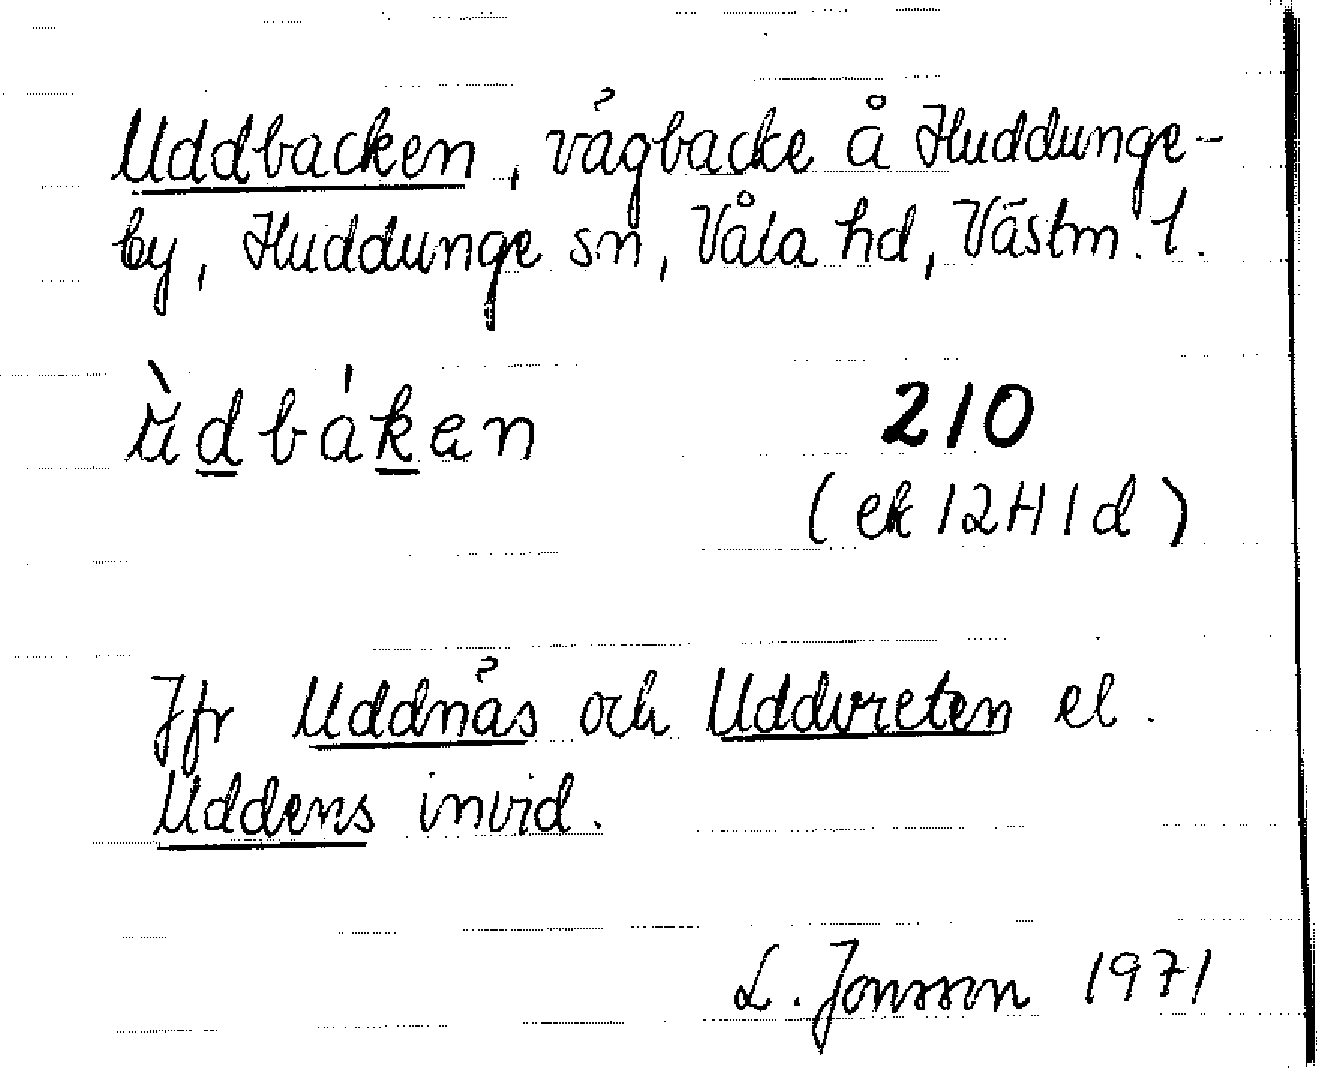 Uddbacken, vägbacke å Huddunge-
by, Huddunge sn, Våla hd, Västm. l.
210
(ek 12H1d)
Jfr Uddnäs och Uddvreten el.
Uddens invid.
L. Jonsson 1971